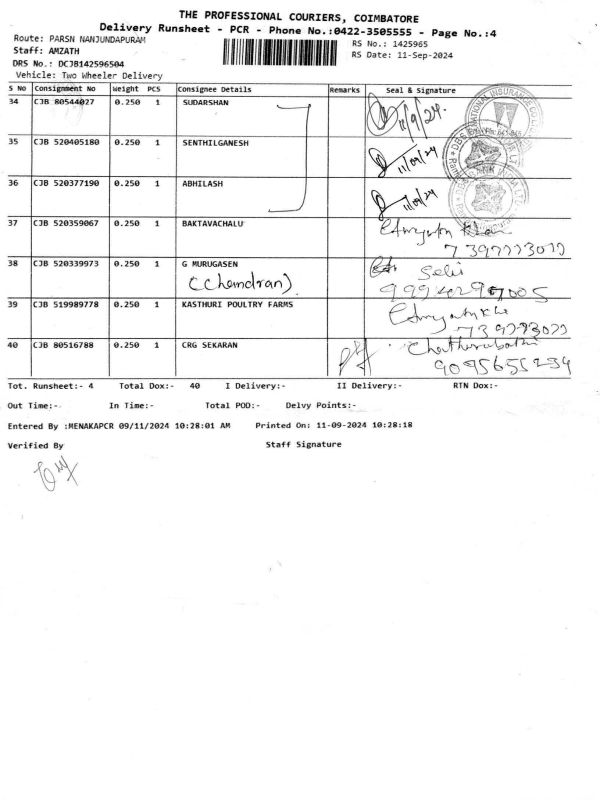 THE PROFESSIONAL COURIERS, COIMBATORE
Delivery Runsheet - PCR - Phone No.:0422-3505555 - Page No.:4
Route: PARSN NANJUNDAPURAM
RS No.: 1425965
Staff: AMZATH
RS Date: 11-Sep-2024
DRS No.: DCJB142596504
Vehicle: Two Wheeler Delivery
S No Consignment No Weight PCS Consignee Details Remarks Seal & Signature
34 CJB 80544027 0.250 1 SUDARSHAN 11/9/24
35 CJB 520405180 0.250 1 SENTHILGANESH 11/09/24
36 CJB 520377190 0.250 1 ABHILASH 11/09/24
37 CJB 520359067 0.250 1 BAKTAVACHALU
38 CJB 520339973 0.250 1 G MURUGASEN
(Chandran)
39 CJB 519989778 0.250 1 KASTHURI POULTRY FARMS
40 CJB 80516788 0.250 1 CRG SEKARAN
9095655234
Tot. Runsheet:- 4 Total Dox:- 40 I Delivery:- II Delivery:- RTN Dox:-
Out Time:- In Time:- Total POD:- Delvy Points:-
Entered By :MENAKAPCR 09/11/2024 10:28:01 AM Printed On: 11-09-2024 10:28:18
Verified By Staff Signature